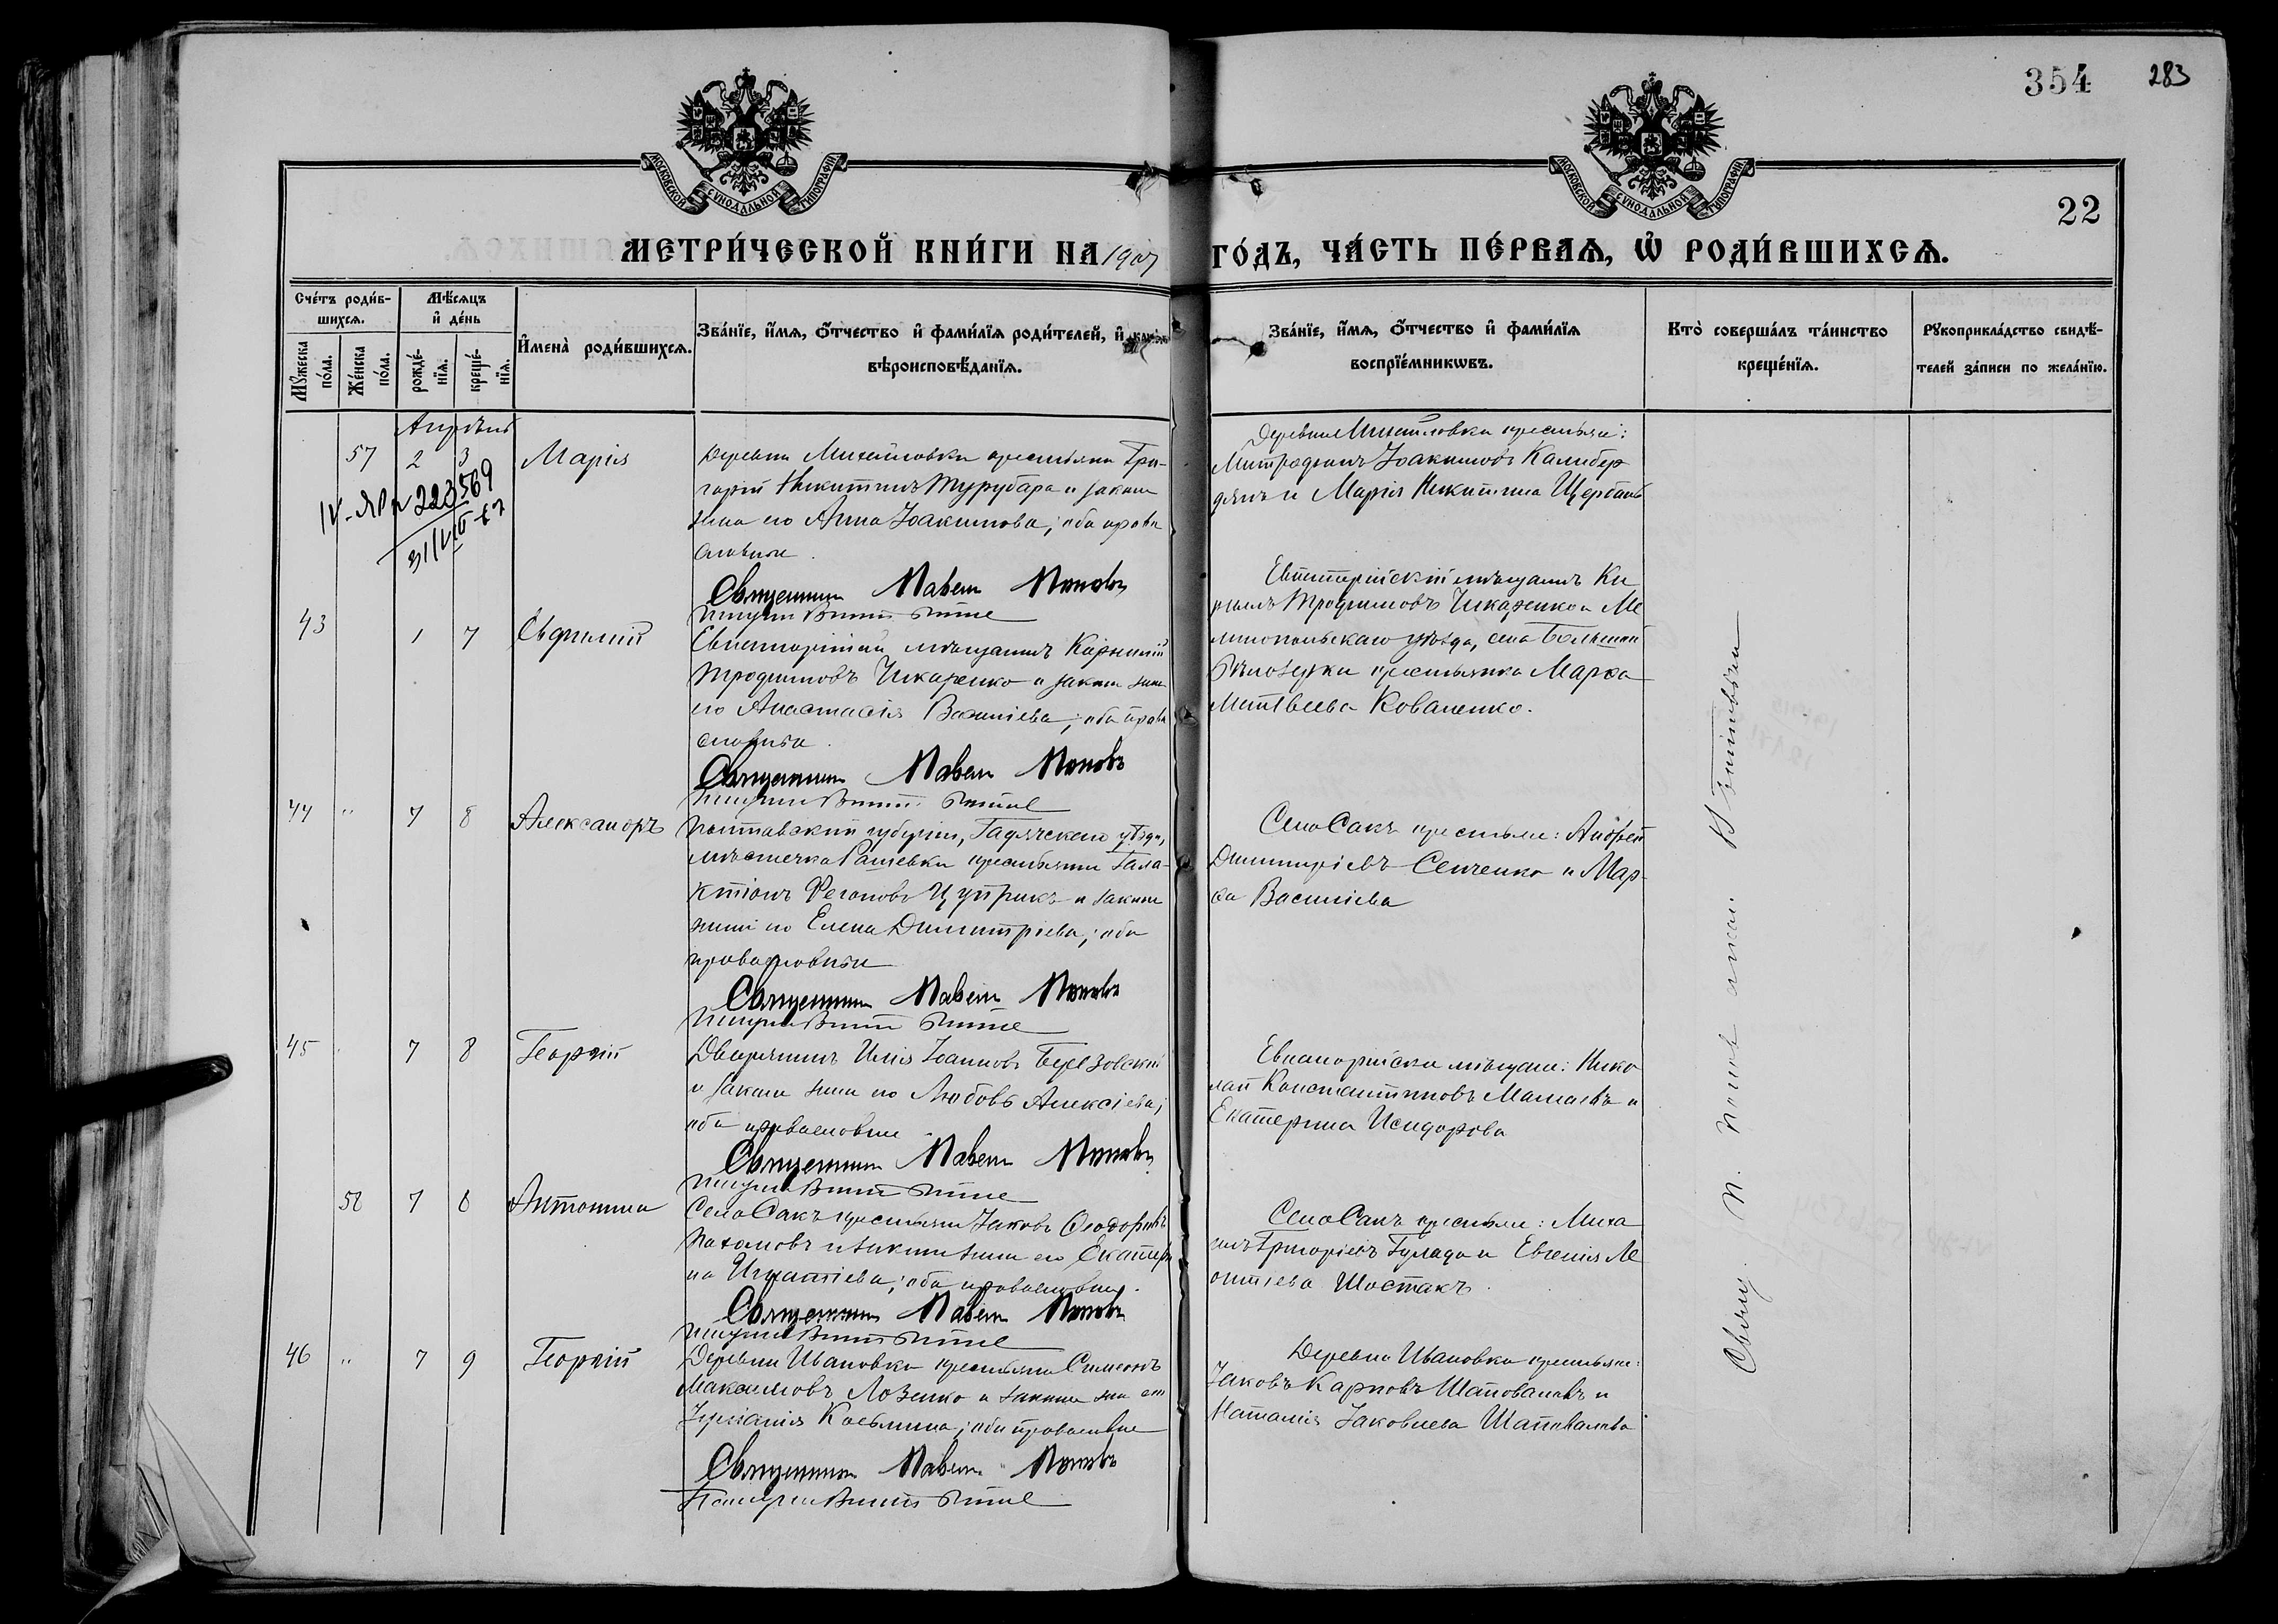 354
283
МОСКОВСКОЙ СѴНОДАЛЬНОЙ ТИПОГРАФІИ
МОСКОВСКОЙ СѴНОДАЛЬНОЙ ТИПОГРАФІИ
22
МЕТРИ́ЧЕСКОЙ КНИ́ГИ НА 1907 ГО́ДЪ, ЧА́СТЬ ПЕ́РВАѦ, Ѽ РОДИ́ВШИХСѦ.
Сче́тъ роди́в-
шихсѧ.
Мꙋ́жеска по́ла.
Же́нска по́ла.
Мѣ́сѧцъ
и҆ де́нь
рожде́-
нїѧ.
креще́-
нїѧ.
И҆мена̀ роди́вшихсѧ.
Зва́нїе, и҆́мѧ, ѻ҆́тчество и҆ фами́лїѧ роди́телей, и҆
вѣроисповѣ́данїѧ.
Зва́нїе, и҆́мѧ, ѻ҆́тчество и҆ фами́лїѧ
воспрїе́мникѡвъ.
Кто̀ соверша́лъ та́инство
креще́нїѧ.
Рꙋкоприкла́дство свидѣ́-
телей за́писи по жела́нїю.
Апрѣль
57 2 3 Марія
IV-ЯР № 223569
31/VIII-67
Деревни Михайловки крестьянинъ Гри-
горій Никитинъ Турубара и закон
жена его Анна Іоакимова; оба право
славные.
Священникъ Павелъ Поповъ
Деревни Михайловки крестьяне:
Митрофанъ Іоакимовъ Калибер
и Марія Никитина Щербань
43 1 7 Евфимій
Евпаторійскій мѣщанинъ Корнилій
Трофимовъ Чикаренко и закон жена
его Анастасія Василіева; оба право
славные.
Священникъ Павелъ Поповъ
Евпаторійскій мѣщанинъ Ки
риллъ Трофимовъ Чикаренко и Ме
литопольскаго уѣзда, села Большой
Бѣлозерки крестьянка Марѳа
Матвѣева Коваленко.
44 " 7 8 Александръ
Полтавской губерніи, Гадячскаго уѣзда,
мѣстечка Рашевки крестьянинъ Гала-
ктіонъ и закон
жена его Елена Димитріева; оба
православные
Священникъ Павелъ Поповъ
Села Сакъ крестьяне: Андрей
Димитріевъ Сенченко и Мар-
ѳа Василіева
45 7 8 Георгій
Дворянинъ Илія Іоанновъ Березовскій
и закон жена его Любовь Алексіева;
оба православные
Священникъ Павелъ Поповъ
Евпаторійскіе мѣщане: Нико
лай Константиновъ Мамаевъ и
Екатерина Исидорова
58 7 8 Антонина
Села Сакъ крестьянинъ Іаковъ Ѳеодоровъ
Пахомовъ и закон жена его Екатери
на Игнатіева; оба православные.
Священникъ Павелъ Поповъ
Села Сакъ крестьяне: Миха
илъ Григоріевъ и Евгенія Ле
онтіева Шостакъ.
46 " 7 9 Георгій
Деревни Ивановки крестьянинъ Симеонъ
Максимовъ Лозенко и закон жена его
Косьмина; оба православные
Священникъ Павелъ Поповъ
Деревни Ивановки крестьяне:
Іаковъ Карповъ Шаповаловъ и
Наталія Іаковлева Шаповалова
Свящ. П. Поповъ